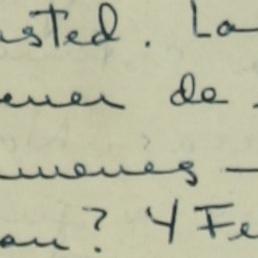 usted. La
ener de
umenes -
an? Y Fe